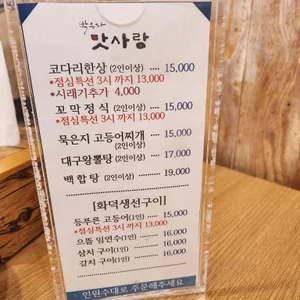 박은자
맛사랑
코다리한상 (2인이상) ---- 15,000
*점심특선 3시 까지 13,000
*시래기추가 4,000
꼬막정식 (2인이상) ------ 15,000
*점심특선 3시 까지 13,000
묵은지 고등어찌개 ---- 15,000
(2인이상)
대구왕뽈탕 (2인이상) --- 17,000
백합탕 (2인이상) -------- 19,000
[화덕생선구이]
등푸른 고등어(1인) ---- 15,000
*점심특선 3시 까지 13,000
으뜸 임연수(1인) ------- 16,000
삼치 구이(1인) --------- 16,000
갈치 구이(1인) --------- 16,000
인원수대로 주문해주세요